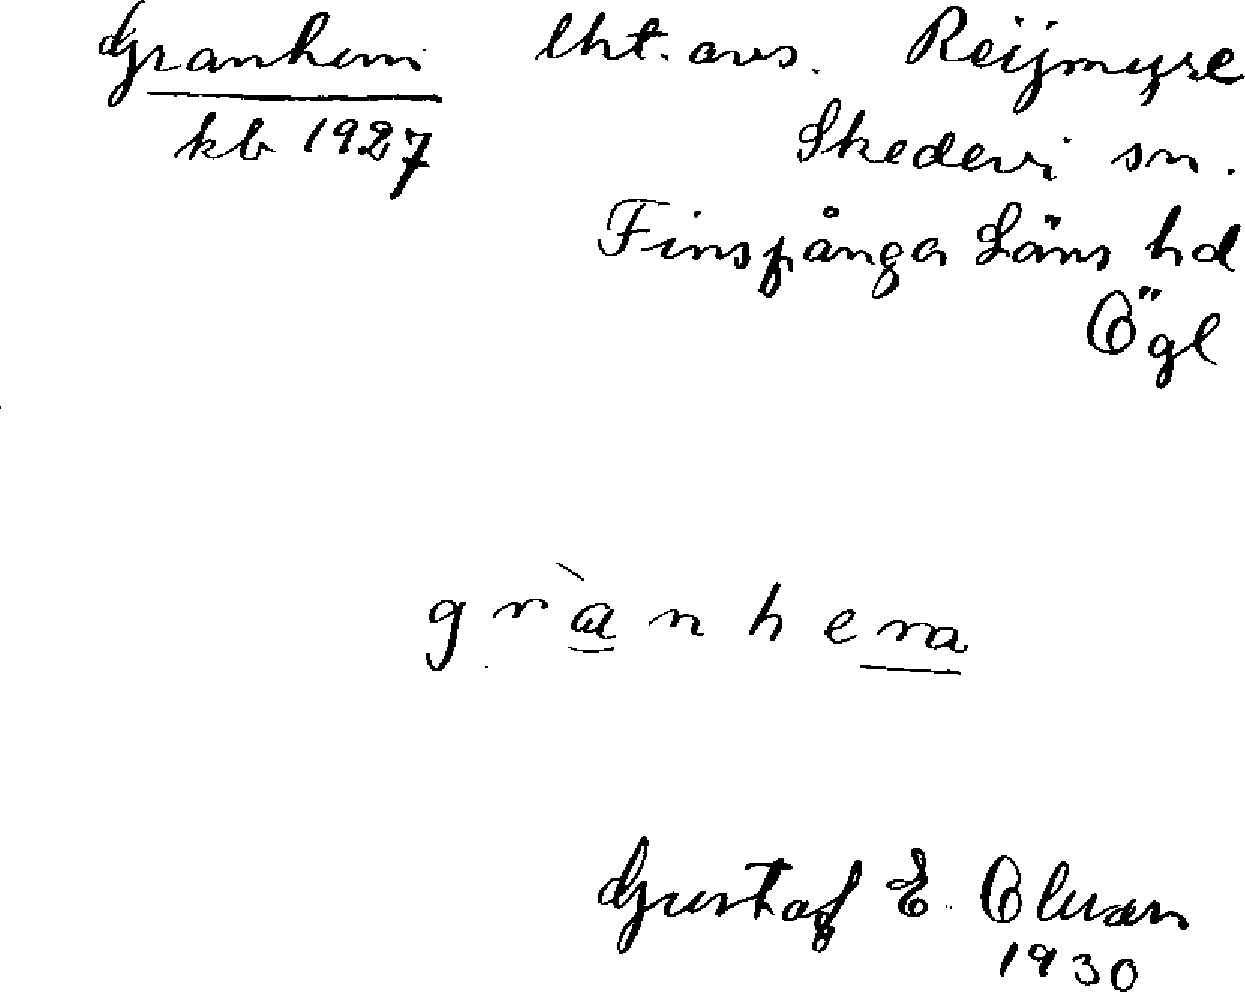 Granhem lht. avs. Reijmyre
kb 1927 Skedevi sn.
Finspånga Läns hd
Ögl
grànhem
Gustaf E.
1930